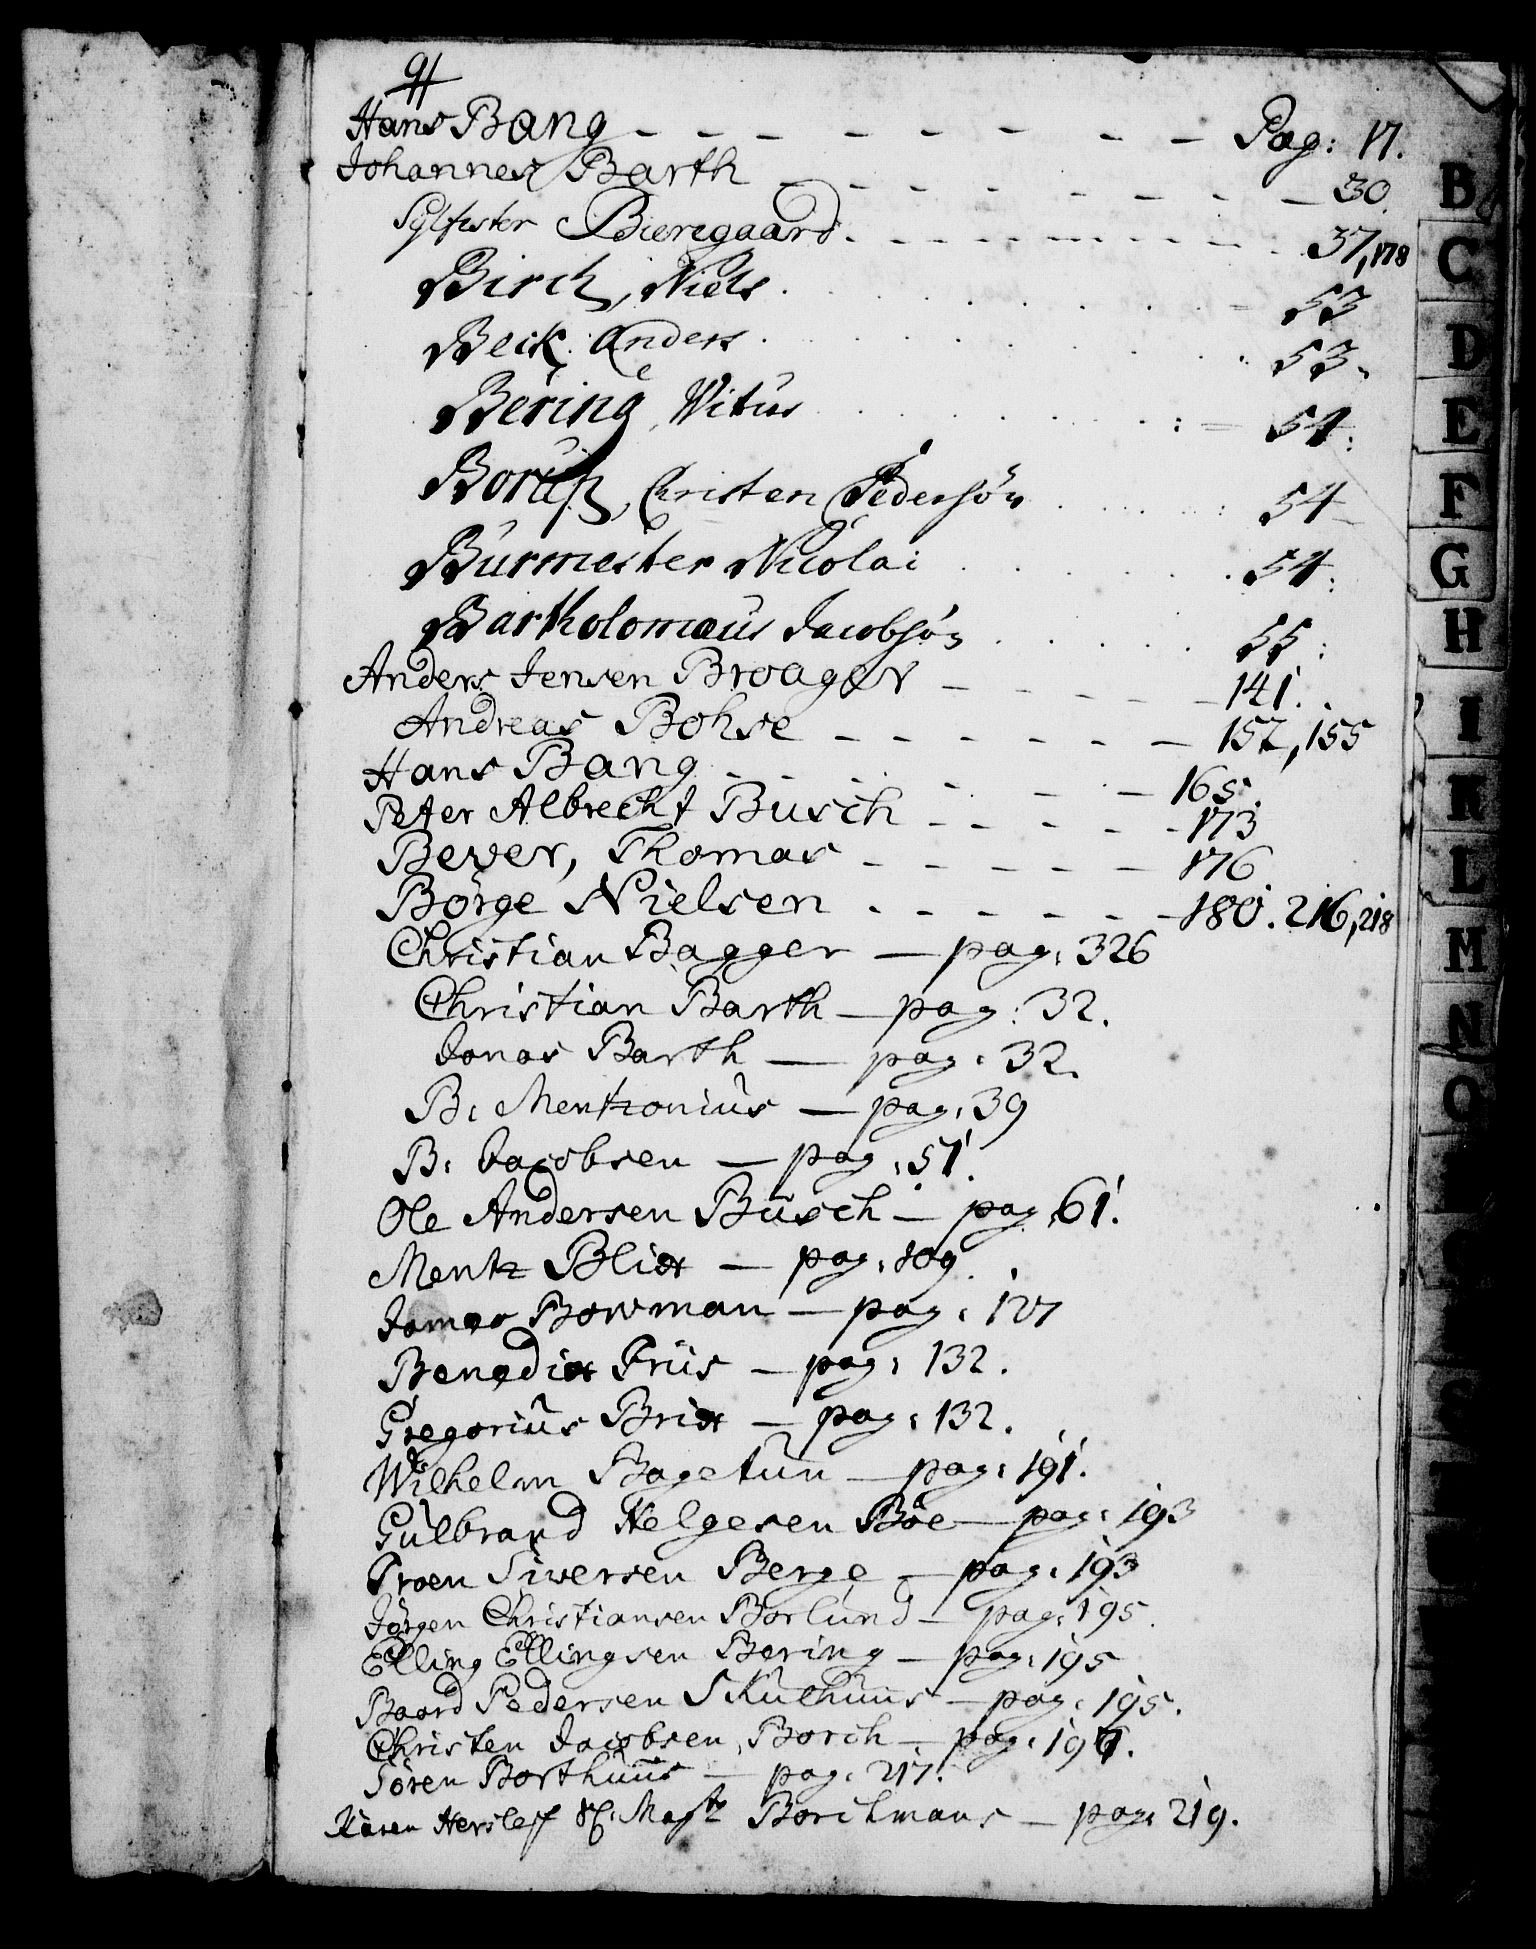 Hans Bang - - - - - - - - Pag: 17.
Johannes Barth - - - - - - - - 30.
Sylfester Bieregaard - - - - - - - 37,178
Birch, Niels . . . . . . 53
Beik. Anders . . . . . . 53.
Bering, Witus . . . . . . 54.
Borup, Christen Pedersøn . . . . 54
Burmester Nicolai . . . . . 54.
Bartholomæus Jacobsøn . . . . 55.
Anders Jensen Broager - - - - - 141.
Andreas Bohse - - - - - - - 152, 155
Hans Bang - - - - - - 165.
Peter Albrecht Busch - - - - - 173
Beyer, Thomas - - - - - - 176
Börge Nielsen - - - - - - 180. 216, 218
Christian Bagger — pag: 326
Christian Barth — pag: 32.
Jonas Barth — pag: 32.
B: Mentzonius — pag: 39
B: Jacobsen — pag: 51.
Ole Andersen Busch — pag 61.
Mentz Blix — pag: 109.
James Bowman — pag: 127
Benedix Friis — pag: 132.
Gregorius Brix — pag: 132.
Wilhelm Bagetun — pag: 191.
Gulbrand Helgesen Böe — pag: 193
Troen Siversen Berge — pag: 193
Jörgen Christiansen Borlund — pag: 195.
Elling Ellingsen Bering — pag: 195
Baard Pedersen Skulhuus — pag: 195.
Christen Jacobsen Borch — pag: 196.
Sören Borthuus — pag: 217.
Karen Hersleff Borchmans — pag: 219.
B
C
D
E
F
G
H
I
K
L
M
N
O